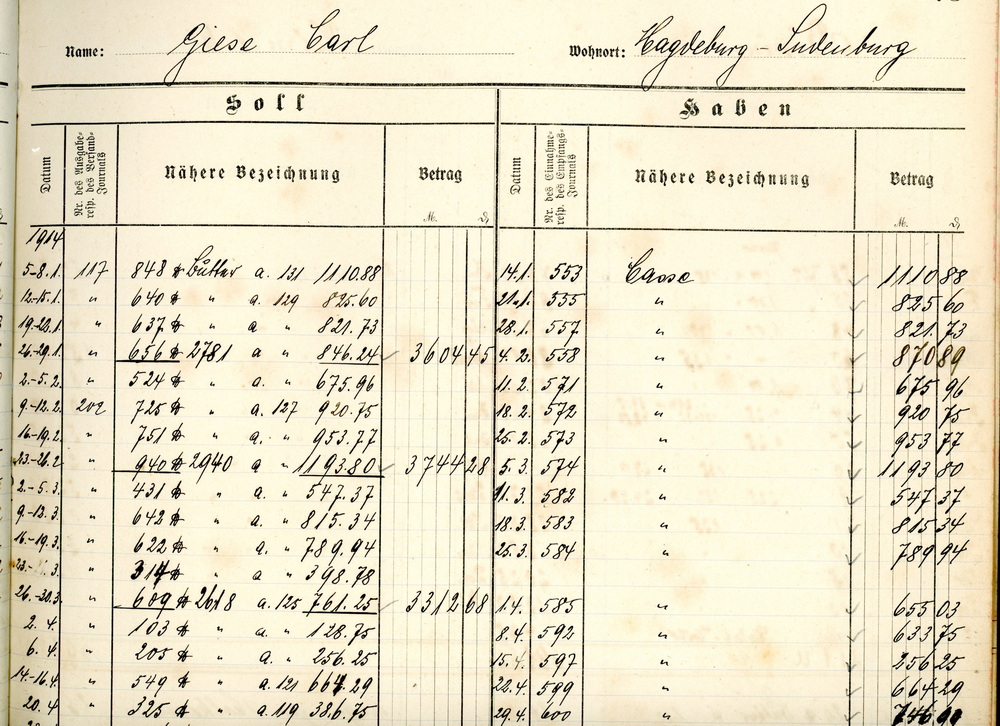 Name: Giese Carl Wohnort: Magdeburg-Sudenburg
Soll Haben
Datum Nr. des Ausgabe- resp. des Versand-Journals Nähere Bezeichnung Betrag M. ₰ Datum Nr. des Einnahme- resp. des Empfangs-Journals Nähere Bezeichnung Betrag M. ₰
1914
5-8.1. 117 848 ℔ Butter a. 131 1110.88 14.1. 553 Casse 1110 88
12.-15.1. " 640 ℔ " a. 129 825.60 21.1. 555 " 825 60
19-22.1. " 637 ℔ " a " 821.73 28.1. 557 " 821.73
26-29.1. " 656 ℔ 2781 a " 846.24 3604 45 4.2. 558 " 870 89
2.-5.2. " 524 ℔ " a. " 675.96 11.2. 571 " 675 96
9.-12.2. 202 725 ℔ " a. 127 920.75 18.2. 572 " 920 75
16-19.2. " 751 ℔ " a. " 953.77 25.2. 573 " 953 77
23-26.2. " 940 ℔ 2940 a " 1193.80 3744 28 5.3. 574 " 1193 80
2.-5.3. " 431 ℔ " a. " 547.37 11.3. 582 " 547 37
9.-12.3. " 642 ℔ " a. " 815.34 18.3. 583 " 815 34
16.-19.3. " 622 ℔ " a. " 789.94 25.3. 584 " 789 94
3. " 314 ℔ " a " 398.78
26.-30.3. " 609 ℔ 2618 a. 125 761.25 3312 68 1.4. 585 " 655 03
2.4. " 103 ℔ " a. " 128.75 8.4. 592 " 633 75
6.4. " 205 ℔ " a. " 256.25 15.4. 597 " 256 25
14.-16.4. " 549 ℔ " a. 121 664.29 22.4. 599 " 664 29
20.4 " 325 ℔ " a. 119 386.75 29.4. 600 "